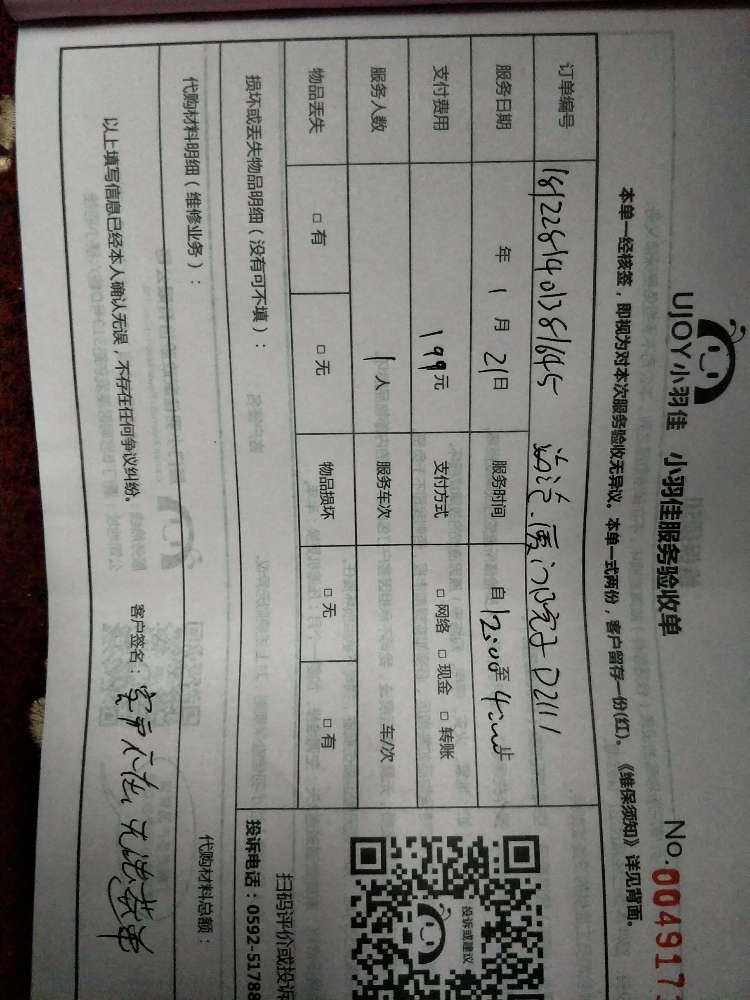 UJOY小羽佳 小羽佳服务验收单
No. 004917
本单一经核签，即视为对本次服务验收无异议。本单一式两份，客户留存一份(红)。《维保须知》详见背面。
订单编号 1812281401381645 厦门院子D2111
服务日期 年 1 月 21 日 服务时间 自 12:00 至 4:00 止
支付费用 199元 支付方式 □ 网络 □ 现金 □ 转账
服务人数 1 人 服务车次 车/次
物品丢失 □ 有 □ 无 物品损坏 □ 无 □ 有
投诉或建议
扫码评价或投诉
损坏或丢失物品明细（没有可不填）：
投诉电话：0592-51788
代购材料明细（维修业务）： 代购材料总额：
以上填写信息已经本人确认无误，不存在任何争议纠纷。 客户签名：客户不在，无法签单